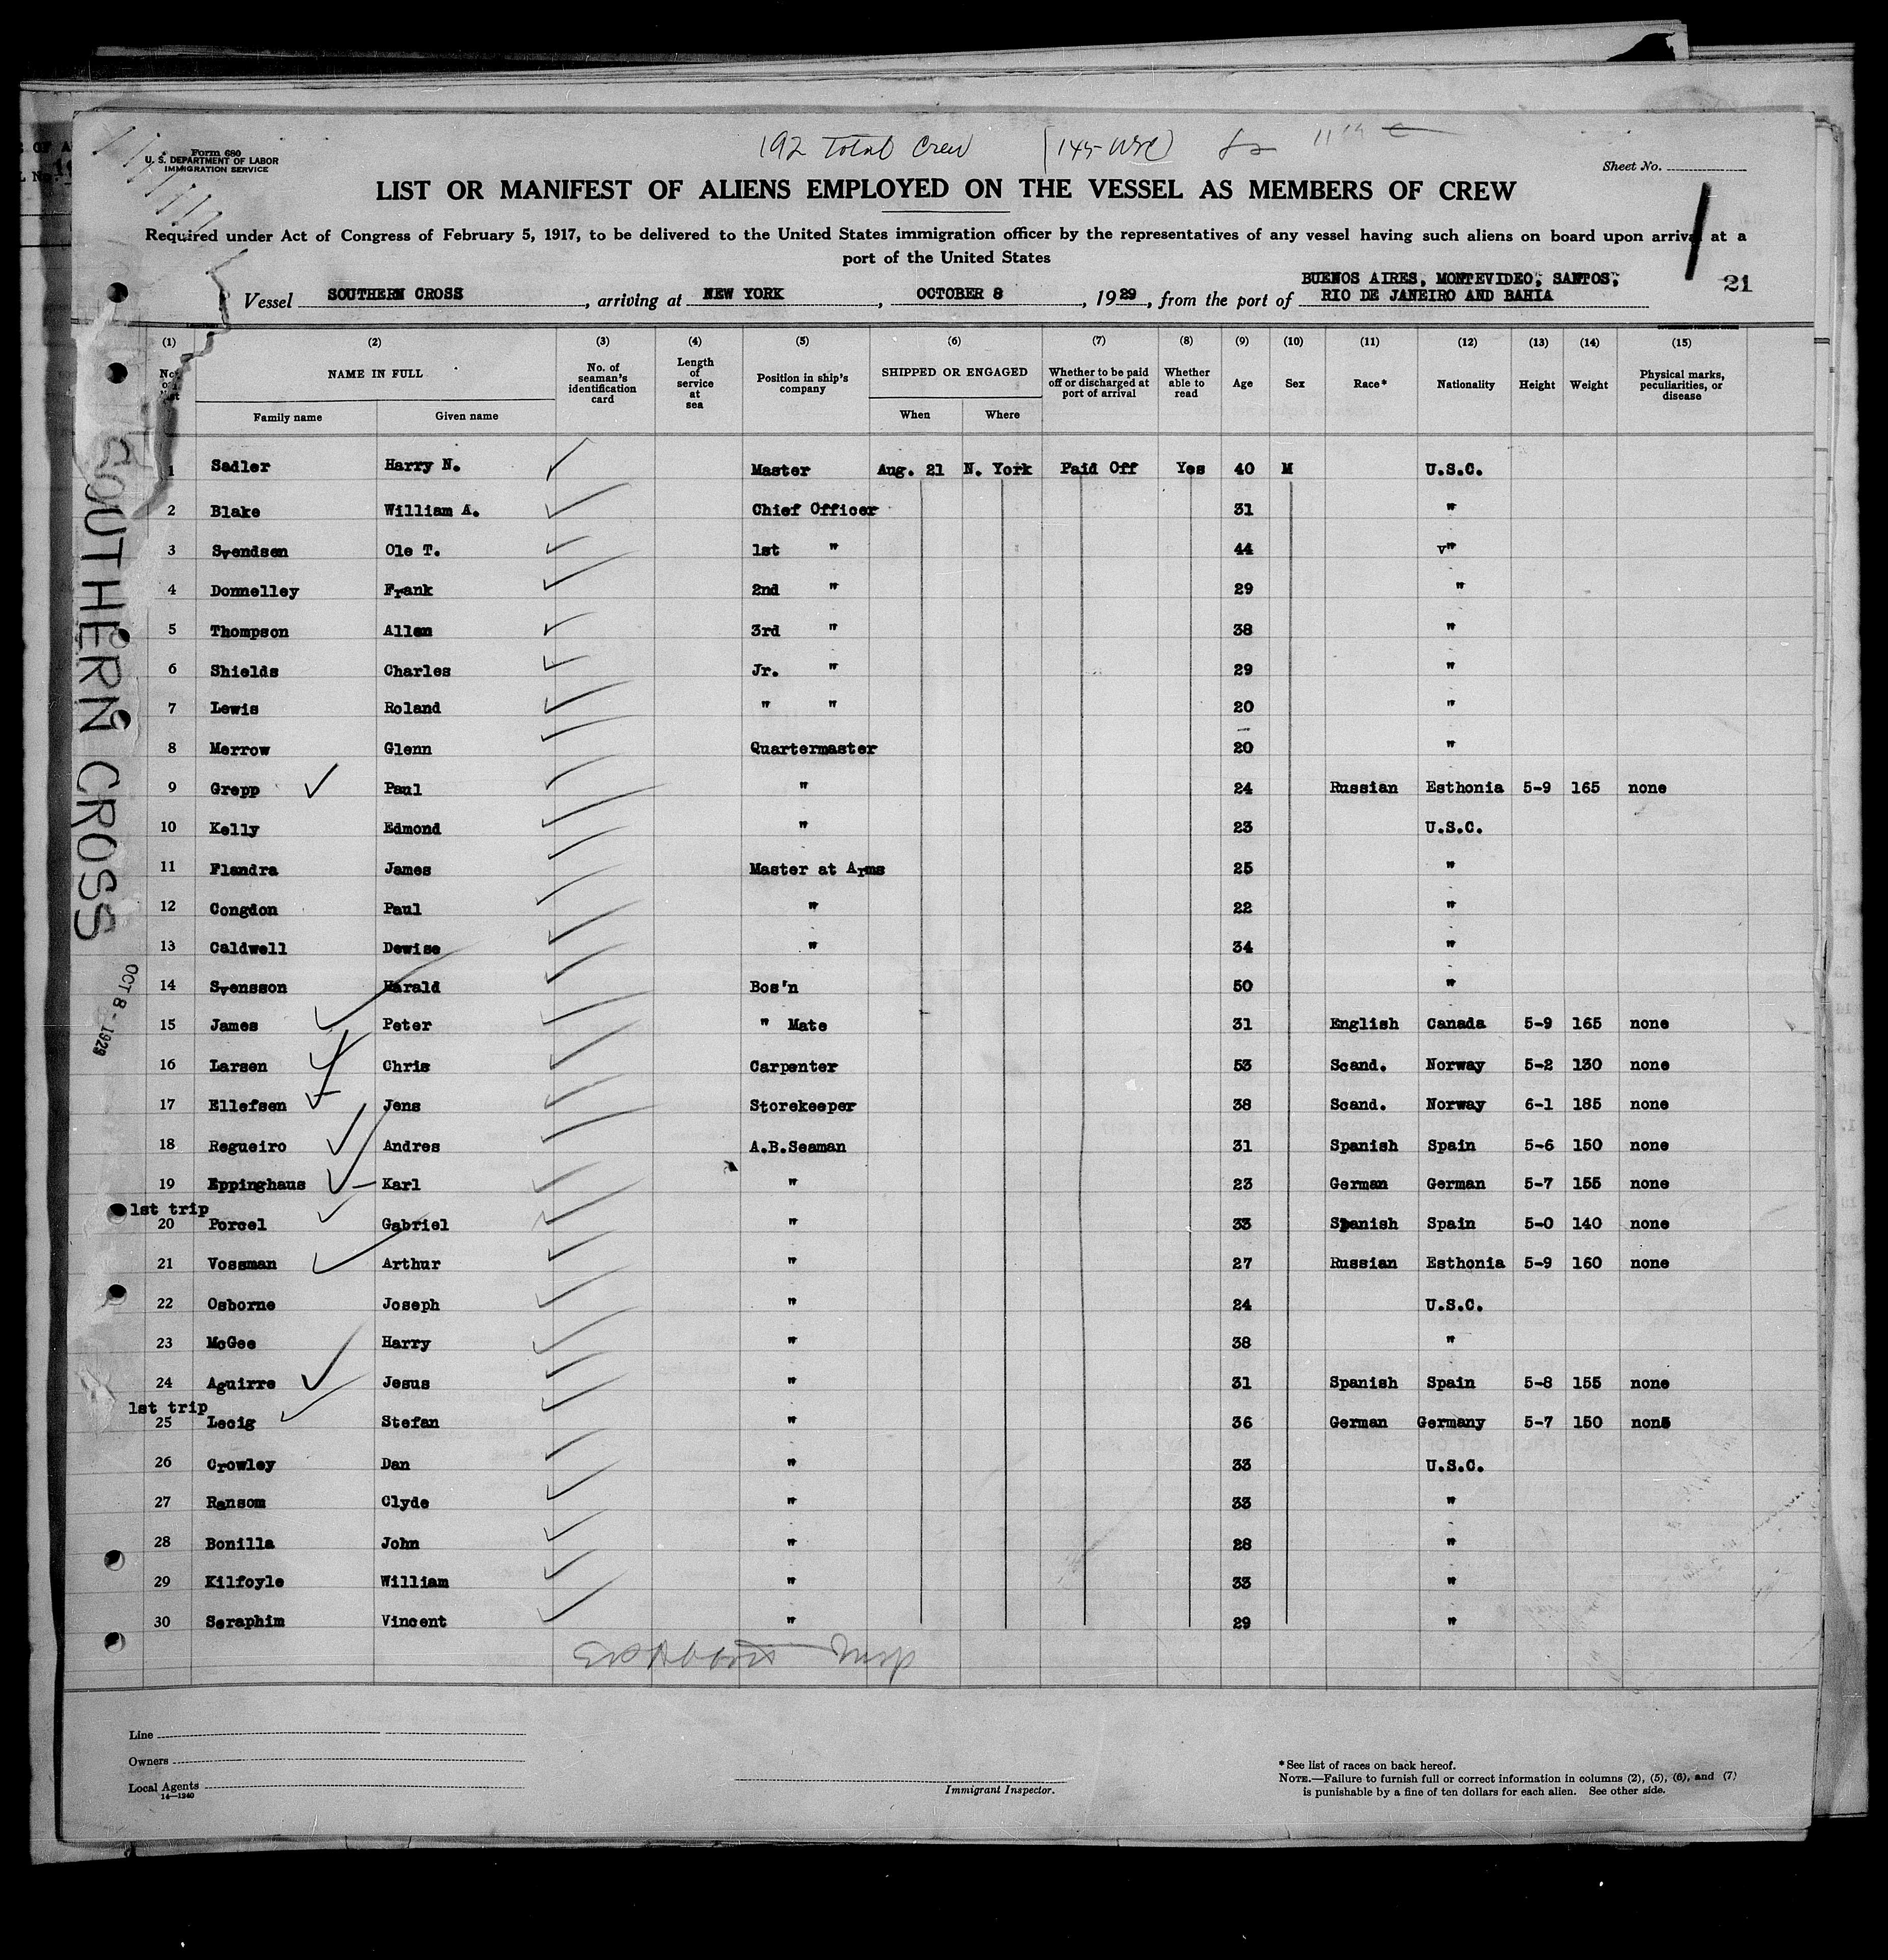 192 Total Crew
Form 680
U. S. DEPARTMENT OF LABOR
IMMIGRATION SERVICE
Sheet No.
1
LIST OR MANIFEST OF ALIENS EMPLOYED ON THE VESSEL AS MEMBERS OF CREW
Required under Act of Congress of February 5, 1917, to be delivered to the United States immigration officer by the representatives of any vessel having such aliens on board upon arrival at a
port of the United States
Vessel SOUTHERN CROSS, arriving at NEW YORK, OCTOBER 8, 1929, from the port of BUENOS AIRES, MONTEVIDEO, SANTOS,
RIO DE JANEIRO AND BAHIA
21
(1) (2) (3) (4) (5) (6) (7) (8) (9) (10) (11) (12) (13) (14) (15)
NAME IN FULL No. of seaman's identification card Length of service at sea Position in ship's company SHIPPED OR ENGAGED Whether to be paid off or discharged at port of arrival Whether able to read Age Sex Race* Nationality Height Weight Physical marks, peculiarities, or disease
Family name Given name When Where
1 Sadler Harry N. Master Aug. 21 N. York Paid Off Yes 40 M U.S.C.
2 Blake William A. Chief Officer 31 "
3 Svendsen Ole T. 1st " 44 v"
4 Donnelley Frank 2nd " 29 "
5 Thompson Allen 3rd " 38 "
6 Shields Charles Jr. " 29 "
7 Lewis Roland " " 20 "
8 Merrow Glenn Quartermaster 20 "
9 Grepp Paul " 24 Russian Esthonia 5-9 165 none
10 Kelly Edmond " 23 U.S.C.
11 Flandra James Master at Arms 25 "
12 Congdon Paul " 22 "
13 Caldwell Dewise " 34 "
14 Svensson Harald Bos'n 50 "
15 James Peter " Mate 31 English Canada 5-9 165 none
16 Larsen Chris Carpenter 53 Scand. Norway 5-2 130 none
17 Ellefsen Jens Storekeeper 38 Scand. Norway 6-1 185 none
18 Regueiro Andres A.B.Seaman 31 Spanish Spain 5-6 150 none
19 Eppinghaus Karl " 23 German German 5-7 155 none
1st trip
20 Porcel Gabriel " 33 Spanish Spain 5-0 140 none
21 Vossman Arthur " 27 Russian Esthonia 5-9 160 none
22 Osborne Joseph " 24 U.S.C.
23 McGee Harry " 38 "
24 Aguirre Jesus " 31 Spanish Spain 5-8 155 none
1st trip
25 Lecig Stefan " 36 German Germany 5-7 150 none
26 Crowley Dan " 33 U.S.C.
27 Ransom Clyde " 33 "
28 Bonilla John " 28 "
29 Kilfoyle William " 33 "
30 Seraphim Vincent " 29 "
SOUTHERN CROSS
OCT 8 - 1929
Line
Owners
Local Agents
14—1240
Immigrant Inspector.
*See list of races on back hereof.
NOTE.—Failure to furnish full or correct information in columns (2), (5), (6), and (7)
is punishable by a fine of ten dollars for each alien. See other side.